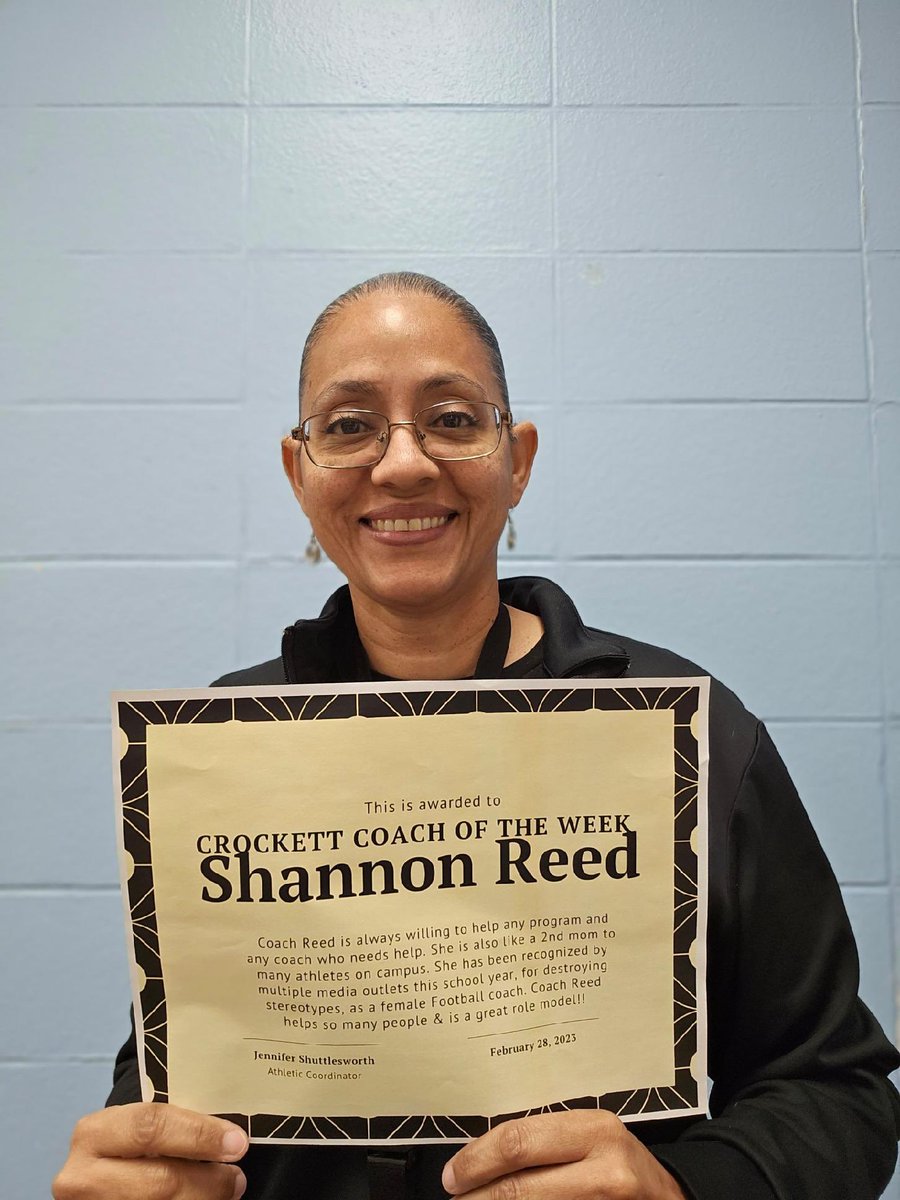 This is awarded to
CROCKETT COACH OF THE WEEK
Shannon Reed
Coach Reed is always willing to help any program and
any coach who needs help. She is also like a 2nd mom to
many athletes on campus. She has been recognized by
multiple media outlets this school year, for destroying
stereotypes, as a female Football coach. Coach Reed
helps so many people & is a great role model!!
Jennifer Shuttlesworth
Athletic Coordinator
February 28, 2023